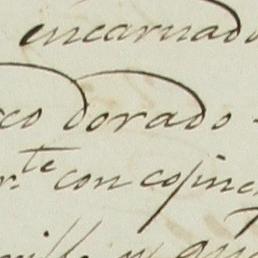 encarnado
co dorado
r.te con cojine